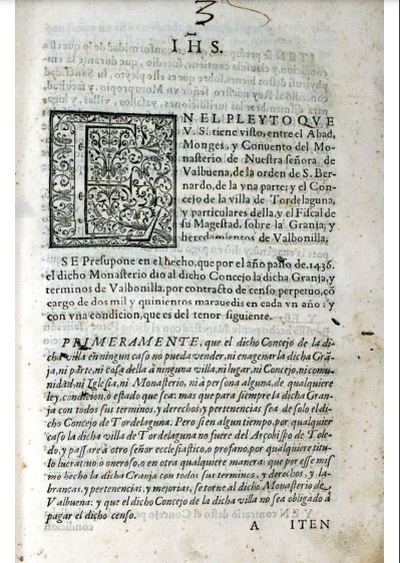 3
IHS.
EN EL PLEYTO QVE
V. S. tiene visto, entre el Abad,
Monges, y Conuento del Mo-
nasterio de Nuestra señora de
Valbuena, de la orden de S. Ber-
nardo, de la vna parte; y el Con-
cejo de la villa de Tordelaguna,
y particulares della, y el Fiscal de
su Magestad, sobre la Granja, y
heredamientos de Valbonilla.
SE Presupone en el hecho, que por el año passo de. 1436.
el dicho Monasterio dio al dicho Concejo la dicha Granja, y
terminos de Valbonilla, por contracto de censo perpetuo, cõ
cargo de dos mil y quinientos marauedis en cada vn año: y
con vna condicion, que es del tenor siguiente.
PRIMERAMENTE, que el dicho Concejo de la di-
cha villa en ningun caso no pueda vender, ni enagenar la dicha Grã
ja, ni parte, ni cosa della à ninguna villa, ni lugar, ni Concejo, ni comu
nidad, ni Iglesia, ni Monasterio, ni à persona alguna, de qualquiere
ley, condicion, o estado que sea: mas que para siempre la dicha Gran
ja con todos sus terminos, y derechos, y pertenencias sea de solo el di
cho Concejo de Tordelaguna. Pero si en algun tiempo, por qualquier
caso la dicha villa de Tordelaguna no fuere del Arçobispo de Tole-
do, y passare à otro señor ecclesiastico, o profano, por qualquiere titu
lo lucratiuo ò oneroso, o en otra qualquiere manera: que por esse mis
mo hecho la dicha Granja con todos sus terminos, y derechos, y la-
branças, y pertenencias, y mejorias, se torne al dicho Monasterio de
Valbuena: y que el dicho Concejo de la dicha villa no sea obligado à
pagar el dicho censo.
A ITEN